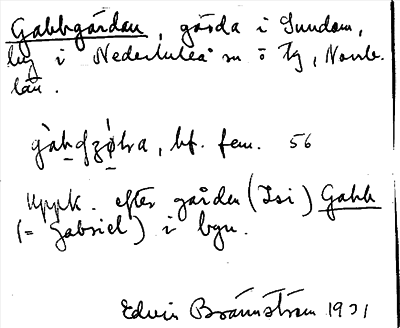 Gabbgärdan, gärda i Sundom,
by i Nederluleå sn o tg, Norrb.
län.
gàbgzøḷra, bf. fem. 56
Uppk. efter gården (Isi) Gabb
(= Gabriel) i byn.
Edvin Brännström 1931